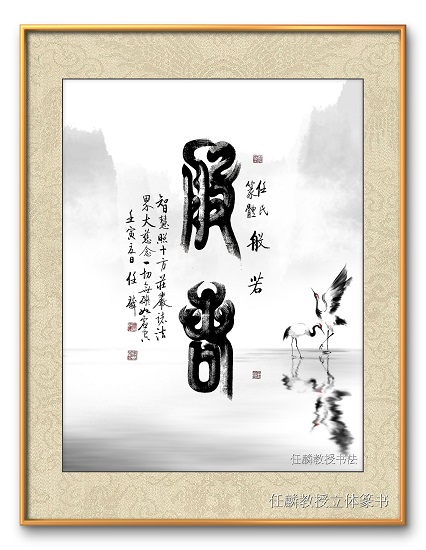 般若
任氏
篆體
般若
智慧照十方莊嚴諸法
界大慈念一切無碍如虛空
壬寅五日任麟
任麟教授书法
任麟教授立体篆书